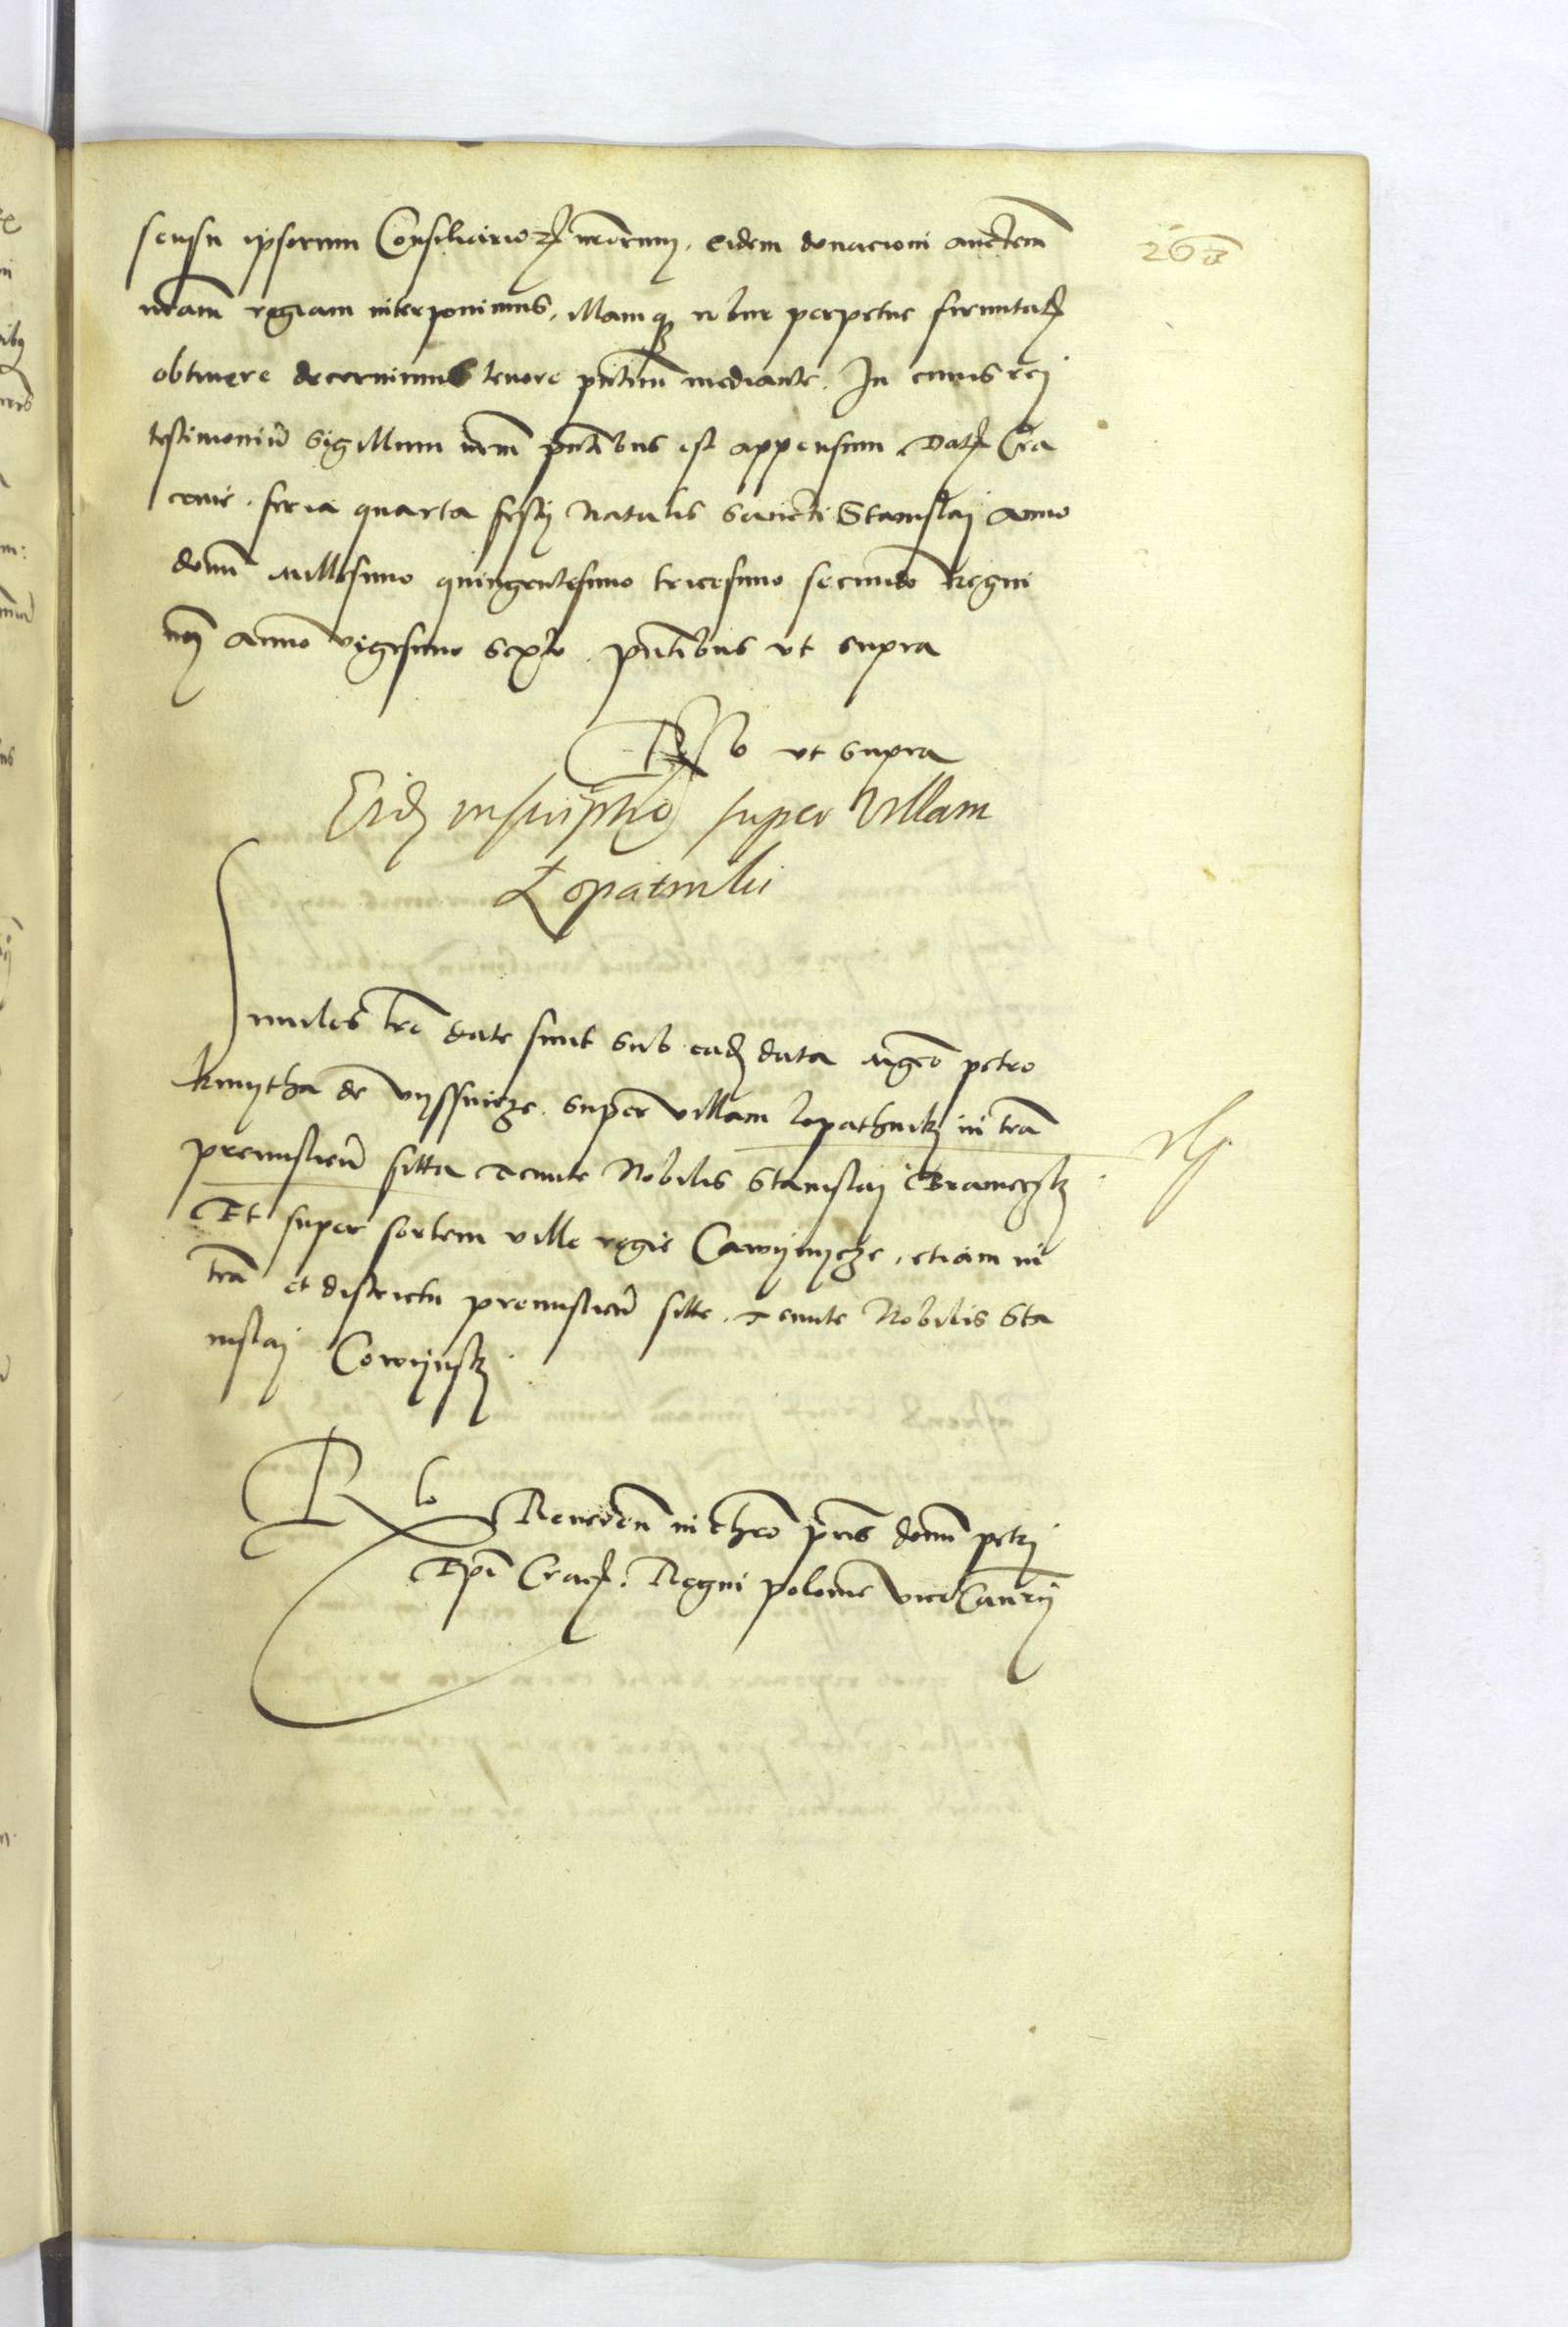 sensu ipsorum Consiliarioꝝ nrorum, eidem donacioni auctem
nram regiam interponimus, illamqꝫ robur perpetue firmitatꝭ
obtinere decernimus tenore pntium mediante. In cuius rei
testimoniu Sigillum nrm pntibus est appensum Datꝭ Cra
couie. feria quarta festi Natalis Sancti Stanislai Anno
domi Millesimo quingentesimo tricesimo secundo Regni
nri Anno vigesimo Sexto. pntibus vt supra
Rlo vt supra
Eidꝫ inscriptio super Villam
Lopatniki
Similes lre date sunt Sub eadꝫ data Mgco petro
kmytha de vyssnicze. Super villam lopathnikj in tra
premislien sitta Tenute Nobilis Stanislaj
Et super sortem ville regie Cawijnycze, etiam in
tra et districtu premislien sitte. Tenute Nobilis Sta
nislaj Cowijnskj.
Rlo Reuerendi in chro pris domi petrj
Epi Cracꝭ. Regni polonie viceCancrij